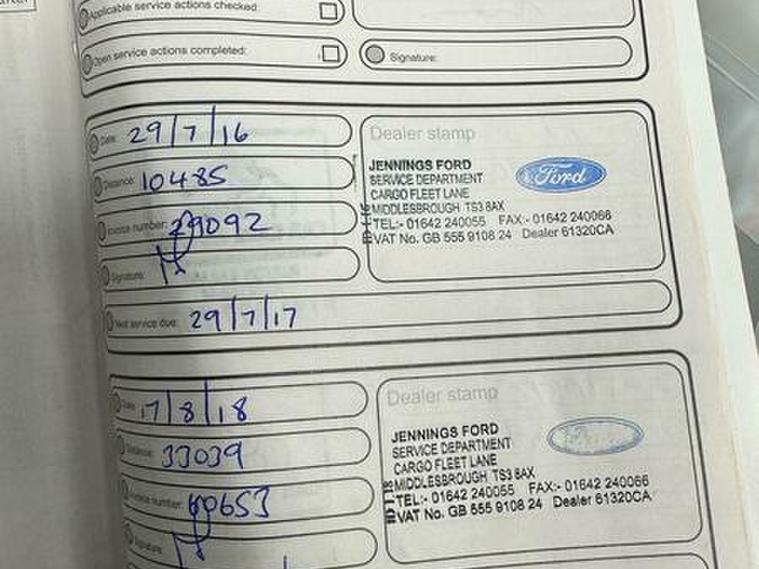 Applicable service actions checked:
Open service actions completed:
Signature:
Date: 29/7/16
Distance: 10485
Invoice number: 29092
Signature:
Next service due: 29/7/17
Dealer stamp
JENNINGS FORD
SERVICE DEPARTMENT
CARGO FLEET LANE
MIDDLESBROUGH TS3 8AX
TEL:- 01642 240055 FAX:- 01642 240066
VAT No. GB 555 9108 24 Dealer 61320CA
Ford
Date: 17/8/18
Distance: 33039
Invoice number: 60653
Signature:
Dealer stamp
JENNINGS FORD
SERVICE DEPARTMENT
CARGO FLEET LANE
MIDDLESBROUGH TS3 8AX
TEL:- 01642 240055 FAX:- 01642 240066
VAT No. GB 555 9108 24 Dealer 61320CA